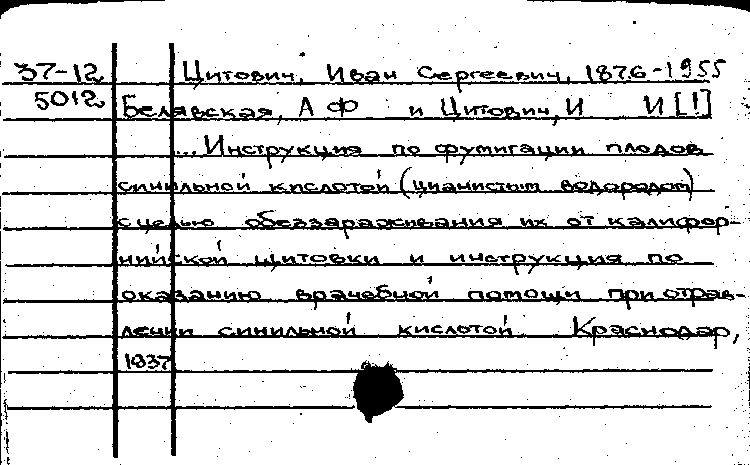 37-12 Цитович, Иван Сергеевич, 1876-1955
5012 Белявская, А Ф и Цитович, И И [!]
... Инструкция по фумигации плодов
синильной кислотой (цианистым водородом)
с целью обеззараживания их от калифор-
нийской щитовки и инструкция по
оказанию врачебной помощи при отрав-
лении синильной кислотой. Краснодар,
1937